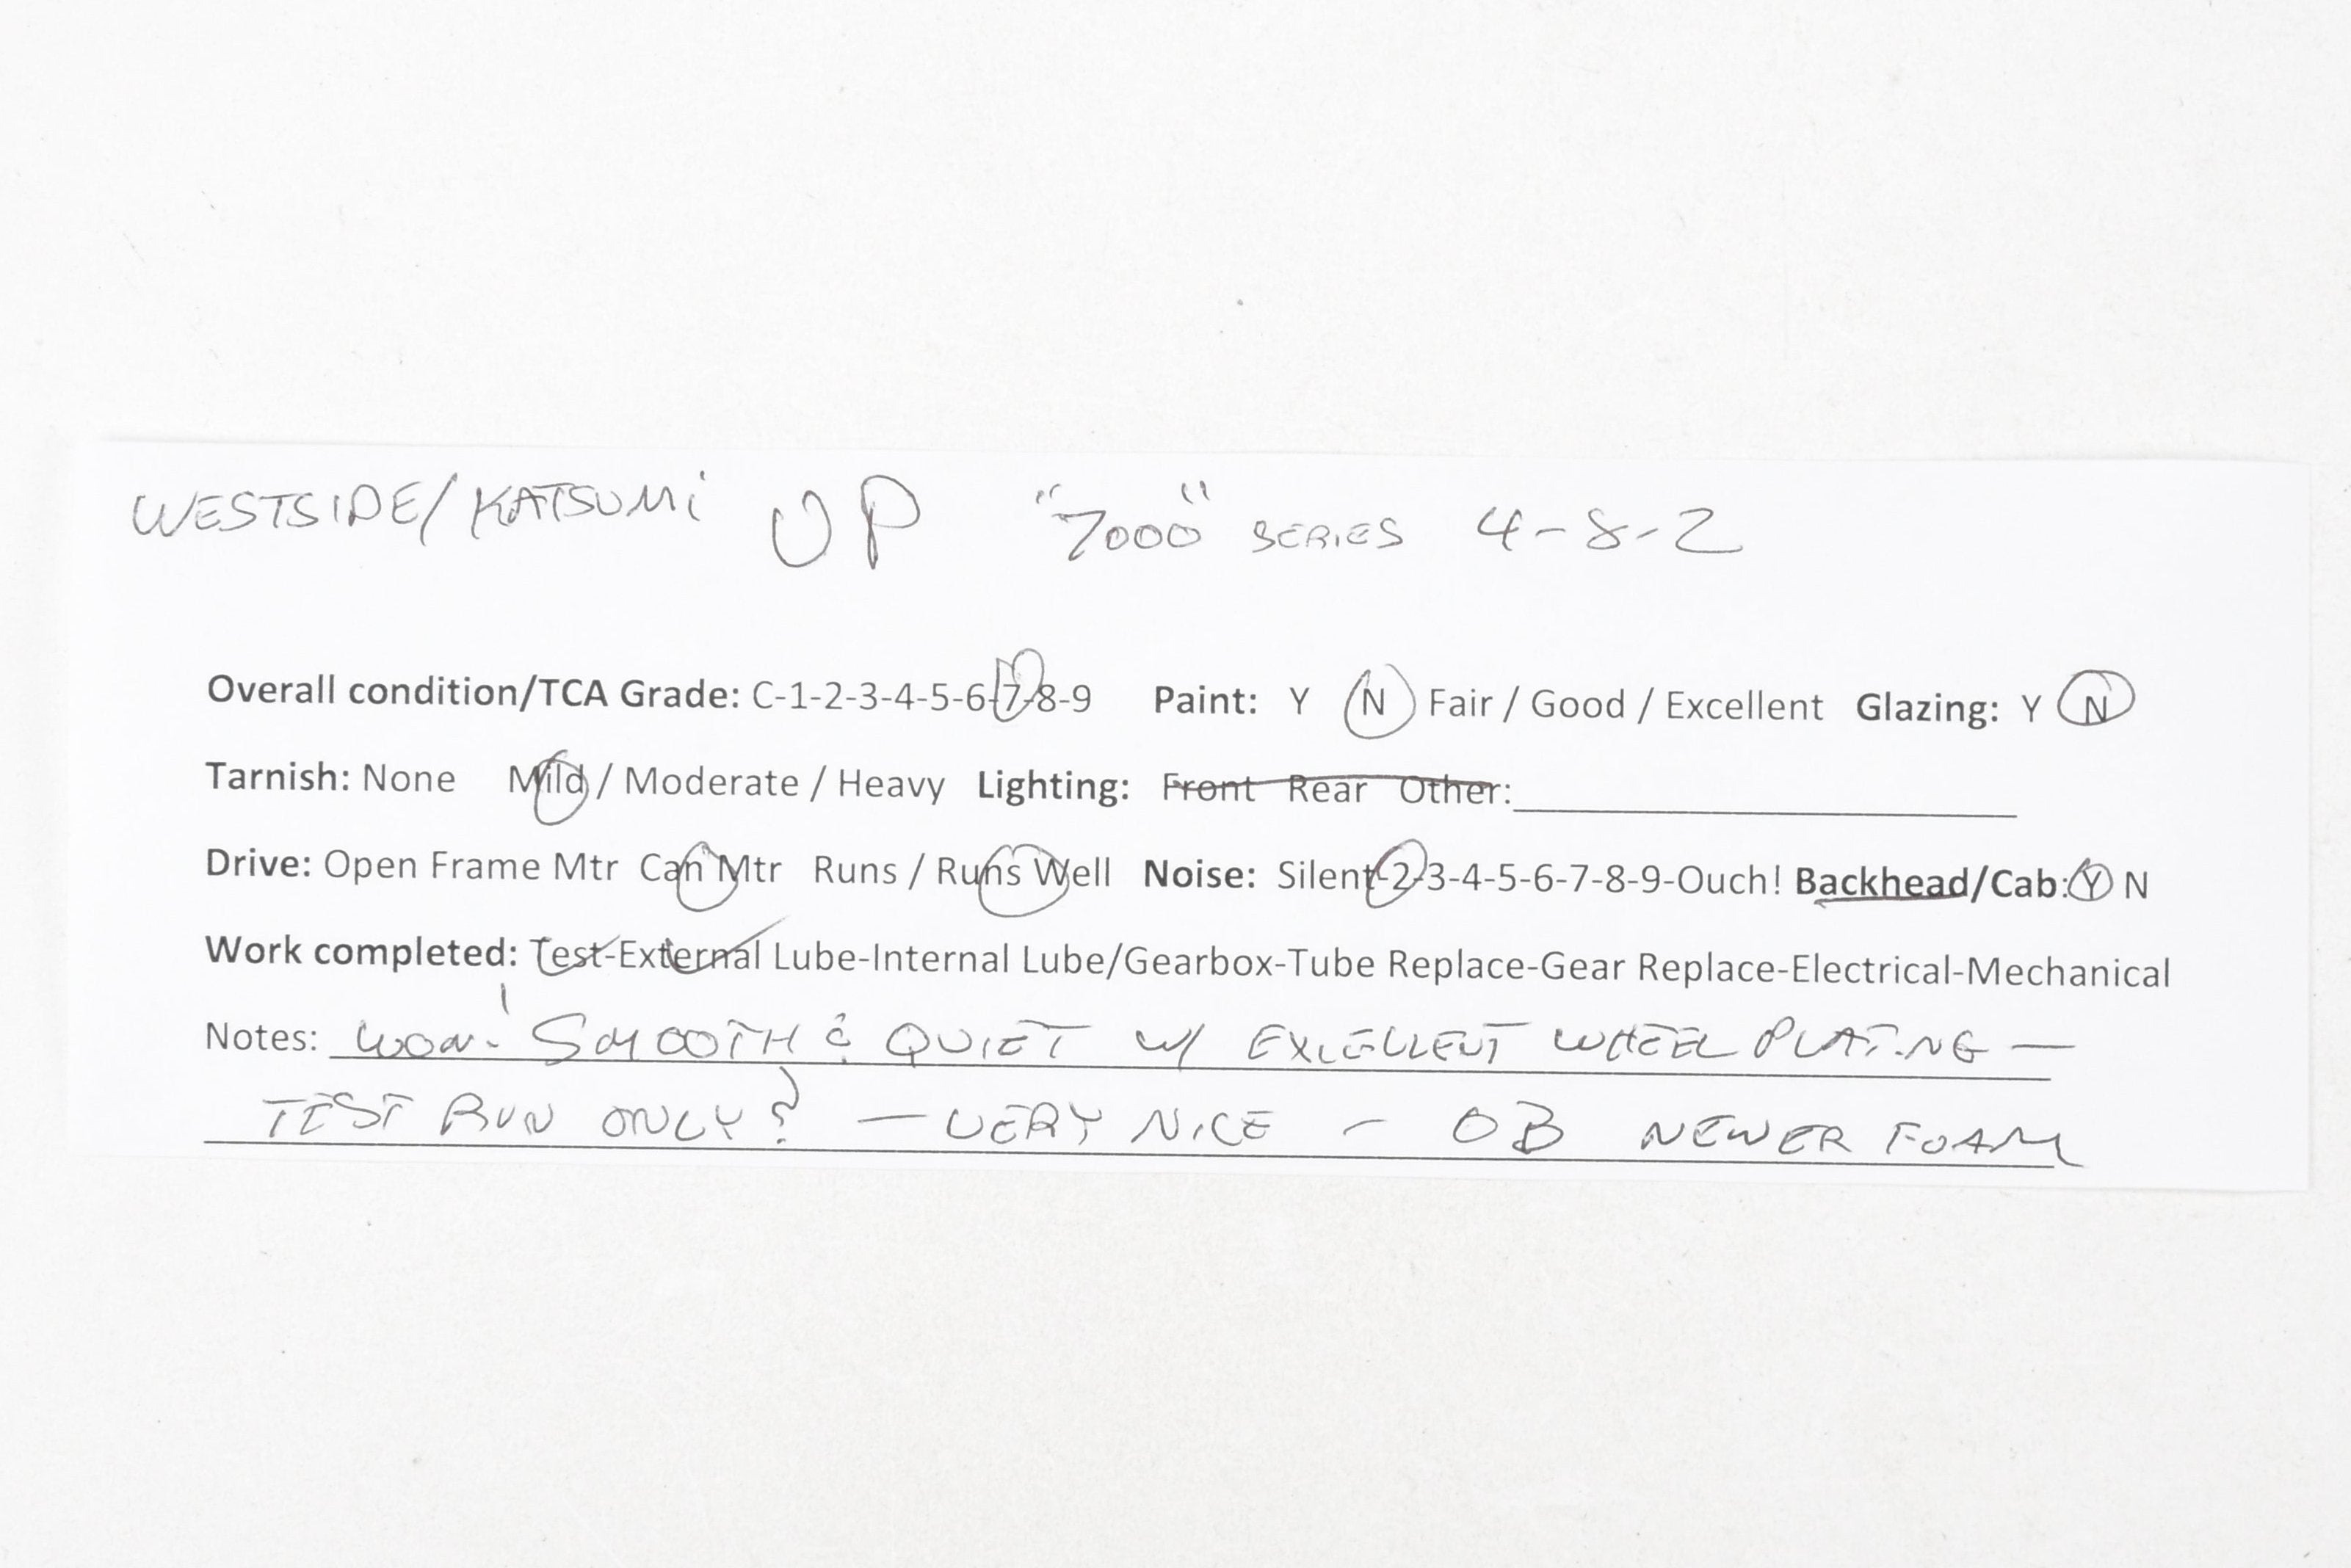 WESTSIDE/KATSUMi UP "7000" SERIES 4-8-2
Overall condition/TCA Grade: C-1-2-3-4-5-6-7-8-9 Paint: Y N Fair / Good / Excellent Glazing: Y N
Tarnish: None Mild / Moderate / Heavy Lighting: Front Rear Other:
Drive: Open Frame Mtr Can Mtr Runs / Runs Well Noise: Silent-2-3-4-5-6-7-8-9-Ouch! Backhead/Cab: Y N
Work completed: Test-External Lube-Internal Lube/Gearbox-Tube Replace-Gear Replace-Electrical-Mechanical
Notes: WOW! SMOOTH & QUIET W/ EXCELLENT WHEEL PLATING —
TEST RUN ONLY? — VERY NICE - OB NEWER FOAM